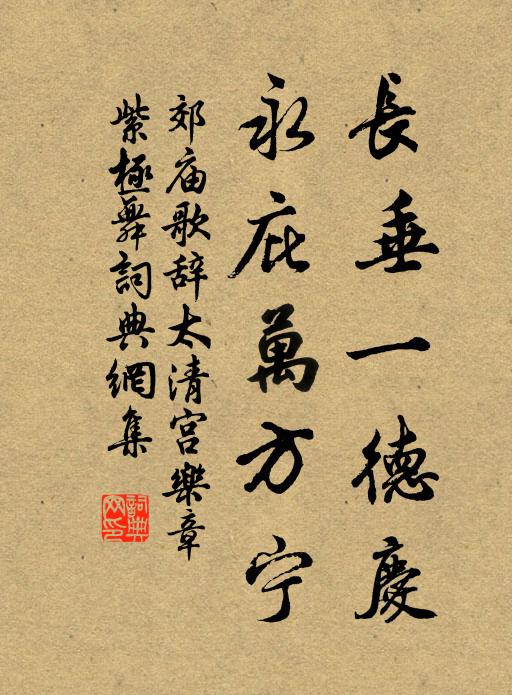 長垂一德慶
永庇萬方宁
郊庙歌辞太清宫樂章
紫極舞詞典網集
詞典
网印